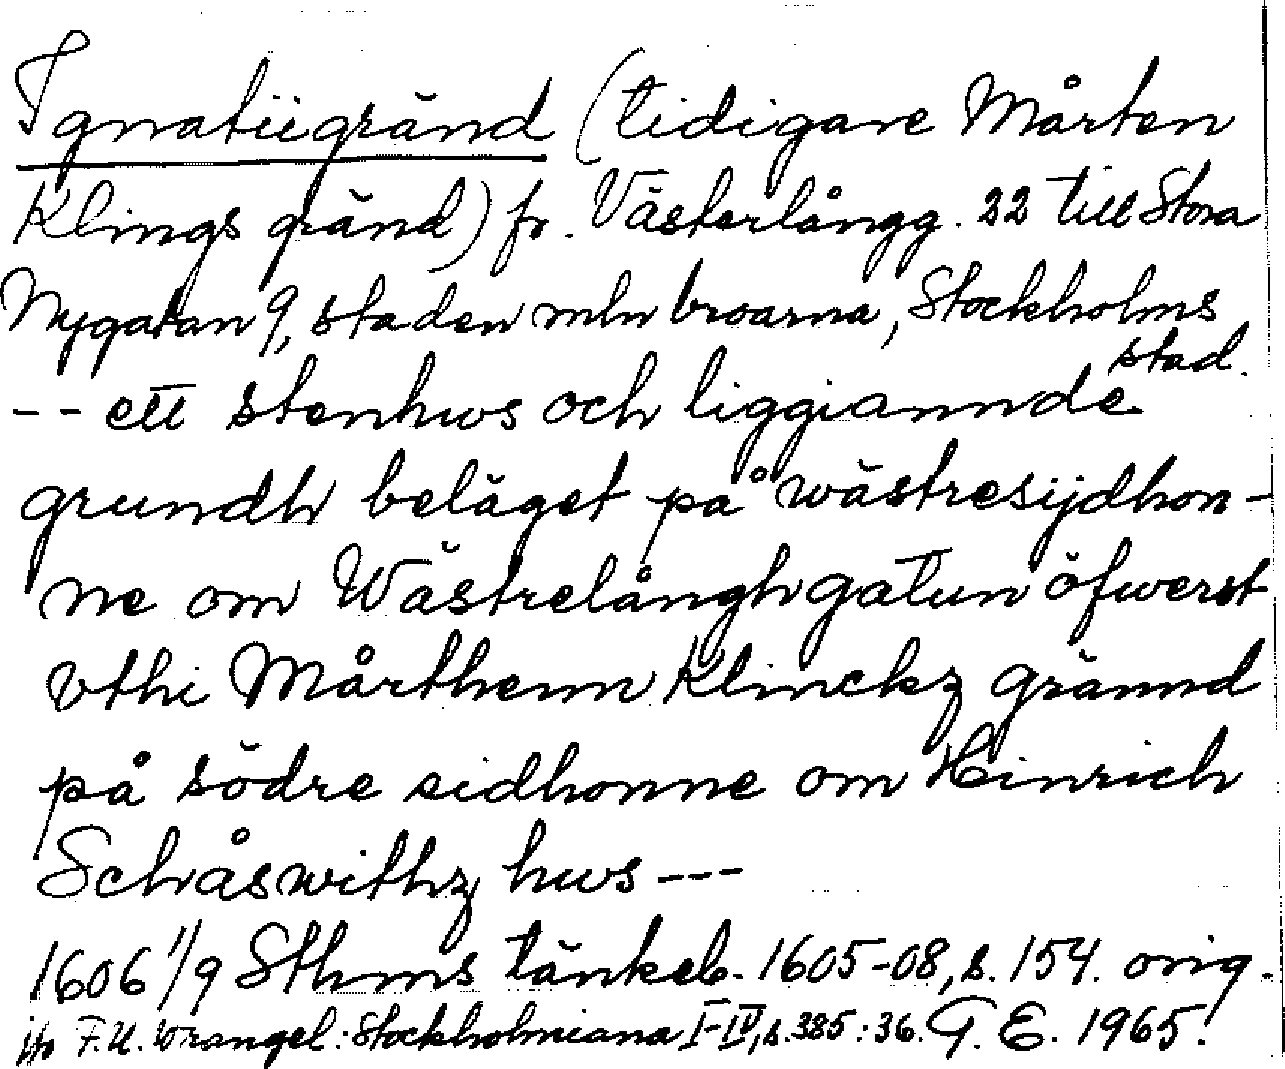 Ignatiigränd (tidigare Mårten
Klings gränd) fr. Västerlångg. 22 till Stora
Nygatan 9, staden mln broarna, Stockholms
stad.
-- ett stenhws och liggiannde
grundh beläget på wästresijdhon-
ne om Wästrelånghgatun öfwerst
vthi Mårthenn Klinckz grännd
på södre sidhonne om Hinrich
Schåswithz hws ---
1606 1/9 Sthms tänkeb. 1605-08, s. 154. orig.
F.U. Wrangel: Stockholmiana I-IV, s. 385: 36. G. E. 1965.